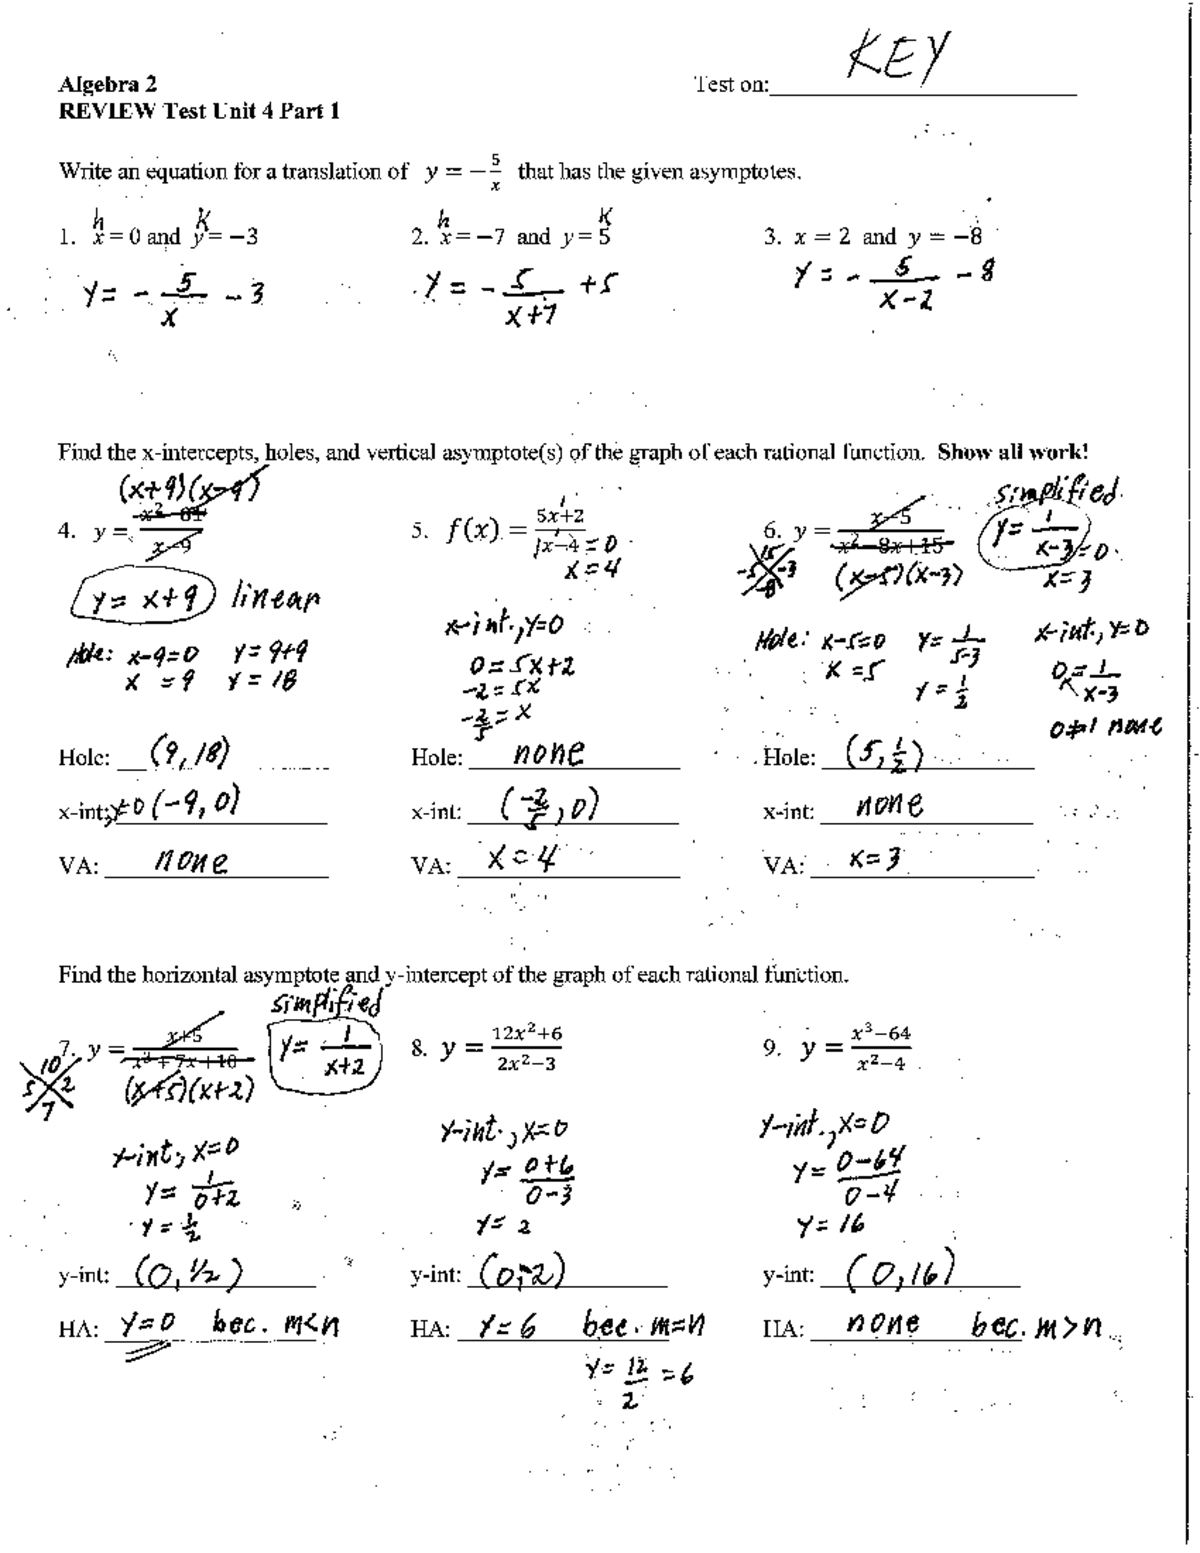 KEY
Algebra 2 Test on:
REVIEW Test Unit 4 Part 1
Write an equation for a translation of y = −5/x that has the given asymptotes.
h K h K
1. x = 0 and y = −3 2. x = −7 and y = 5 3. x = 2 and y = −8
y = - 5/x - 3 y = - 5/(x+7) + 5 y = - 5/(x-2) - 8
Find the x-intercepts, holes, and vertical asymptote(s) of the graph of each rational function. Show all work!
(x+9)(x-9) simplified
4. y = (x²−81)/(x−9) 5. f(x) = (5x+2)/(1x−4) 6. y = (x−5)/(x²−8x+15) y = 1/(x-3)
1 1 = 0 15 -5 -3 -8 (x-5)(x-3) = 0
x = 4 x = 3
y = x+9 linear
x-int., y=0
Hole: x-9=0 y = 9+9
x = 9 y = 18
0 = 5x+2
-2 = 5x
-2/5 = x
Hole: x-5=0 y = 1/(5-3)
x = 5 y = 1/2
x-int., y=0
0 = 1/(x-3)
0≠1 none
Hole: (9, 18) Hole: none Hole: (5, 1/2)
x-int: y=0 (-9, 0) x-int: (-2/5, 0) x-int: none
VA: none VA: x = 4 VA: x = 3
Find the horizontal asymptote and y-intercept of the graph of each rational function.
simplified
7. y = (x+5)/(x²+7x+10) y = 1/(x+2) 8. y = (12x²+6)/(2x²−3) 9. y = (x³−64)/(x²−4)
10 5 2 7 (x+5)(x+2)
y-int., x=0 y-int., x=0 y-int., x=0
y = 1/(0+2) y = (0+6)/(0-3) y = (0-64)/(0-4)
y = 1/2 y = 2 y = 16
y-int: (0, 1/2) y-int: (0, -2) y-int: (0, 16)
HA: y=0 bec. m<n HA: y = 6 bec. m=n HA: none bec. m>n
y = 12/2 = 6